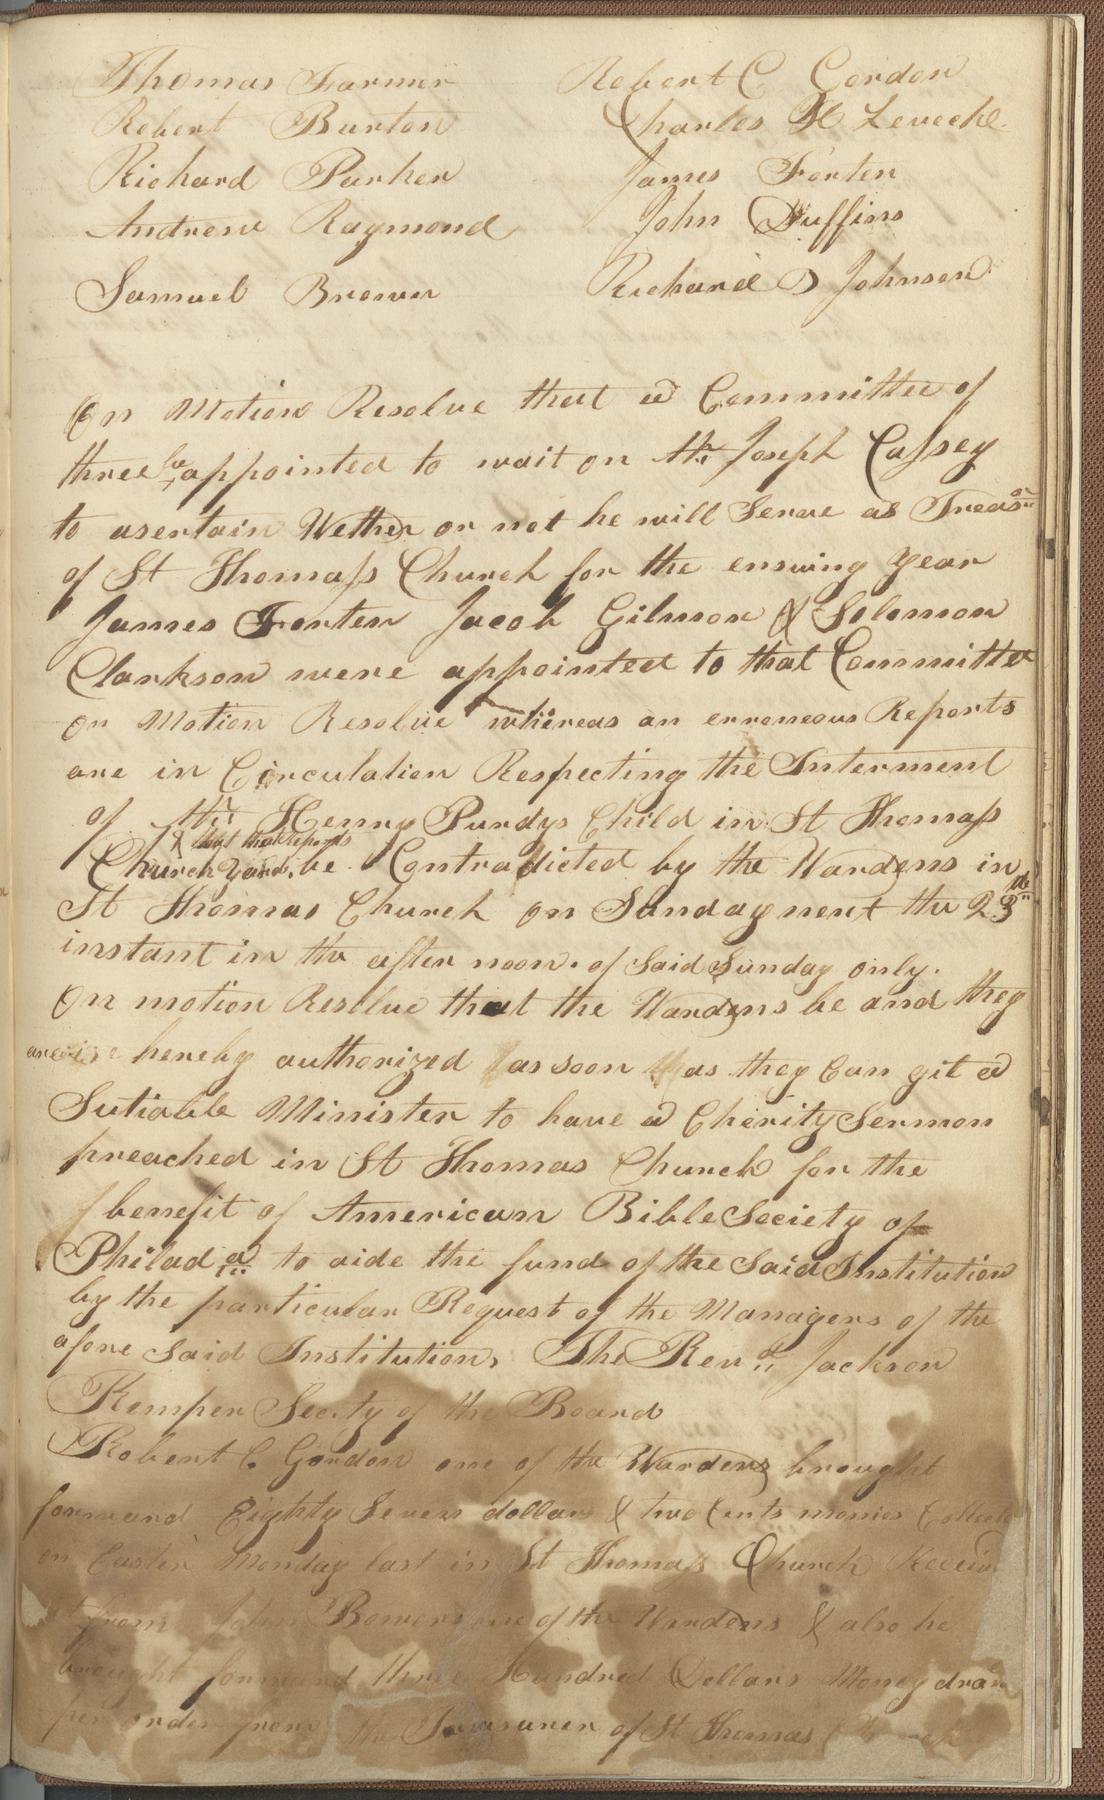 Thomas Farmer Robert C Gordon
Robert Burton Charles H Leveck
Richard Parker James Forten
Andrew Raymond John Duffins
Samuel Brown Richard D Johnson
On Motion Resolve that a Committee of
three be appointed to wait on Mr. Joseph Cassey
to asertain Wether or not he will Serve as Treasr
of St Thomass Church for the ensuing year
James Forten Jacob Gilmon & Solomon
Clarkson were appointed to that Committee
on Motion Resolve whereas an erroneous Reports
are in Circulation Respecting the Interment
of Mr. Henry Purdys Child in St Thomass
& that that reports
Church Yard, be Contradicted by the Wardens in
St Thomas Church on Sunday next the 23rd
instant in the after noon. of Said Sunday only.
On motion Resolve that the Wardens be and they
are hereby authorized as soon as they Can git a
Sutiable Minister to have a Cherity Sermon
preached in St Thomas Church for the
benefit of American Bible Society of
Philada to aide the fund of the Said Institution
by the particular Request of the Managers of the
afore Said Institution, The Revd Jackson
Kemper Secety of the Board
Robert C. Gordon one of the Wardens brought
forward Eighty Seven dollars & two Cents monies
on Easter Monday last in St Thomass Church
from John Bowers one of the Wardens & also he
brought forward three Hundred Dollars Money
per order from the Treasurer of St Thomas Church